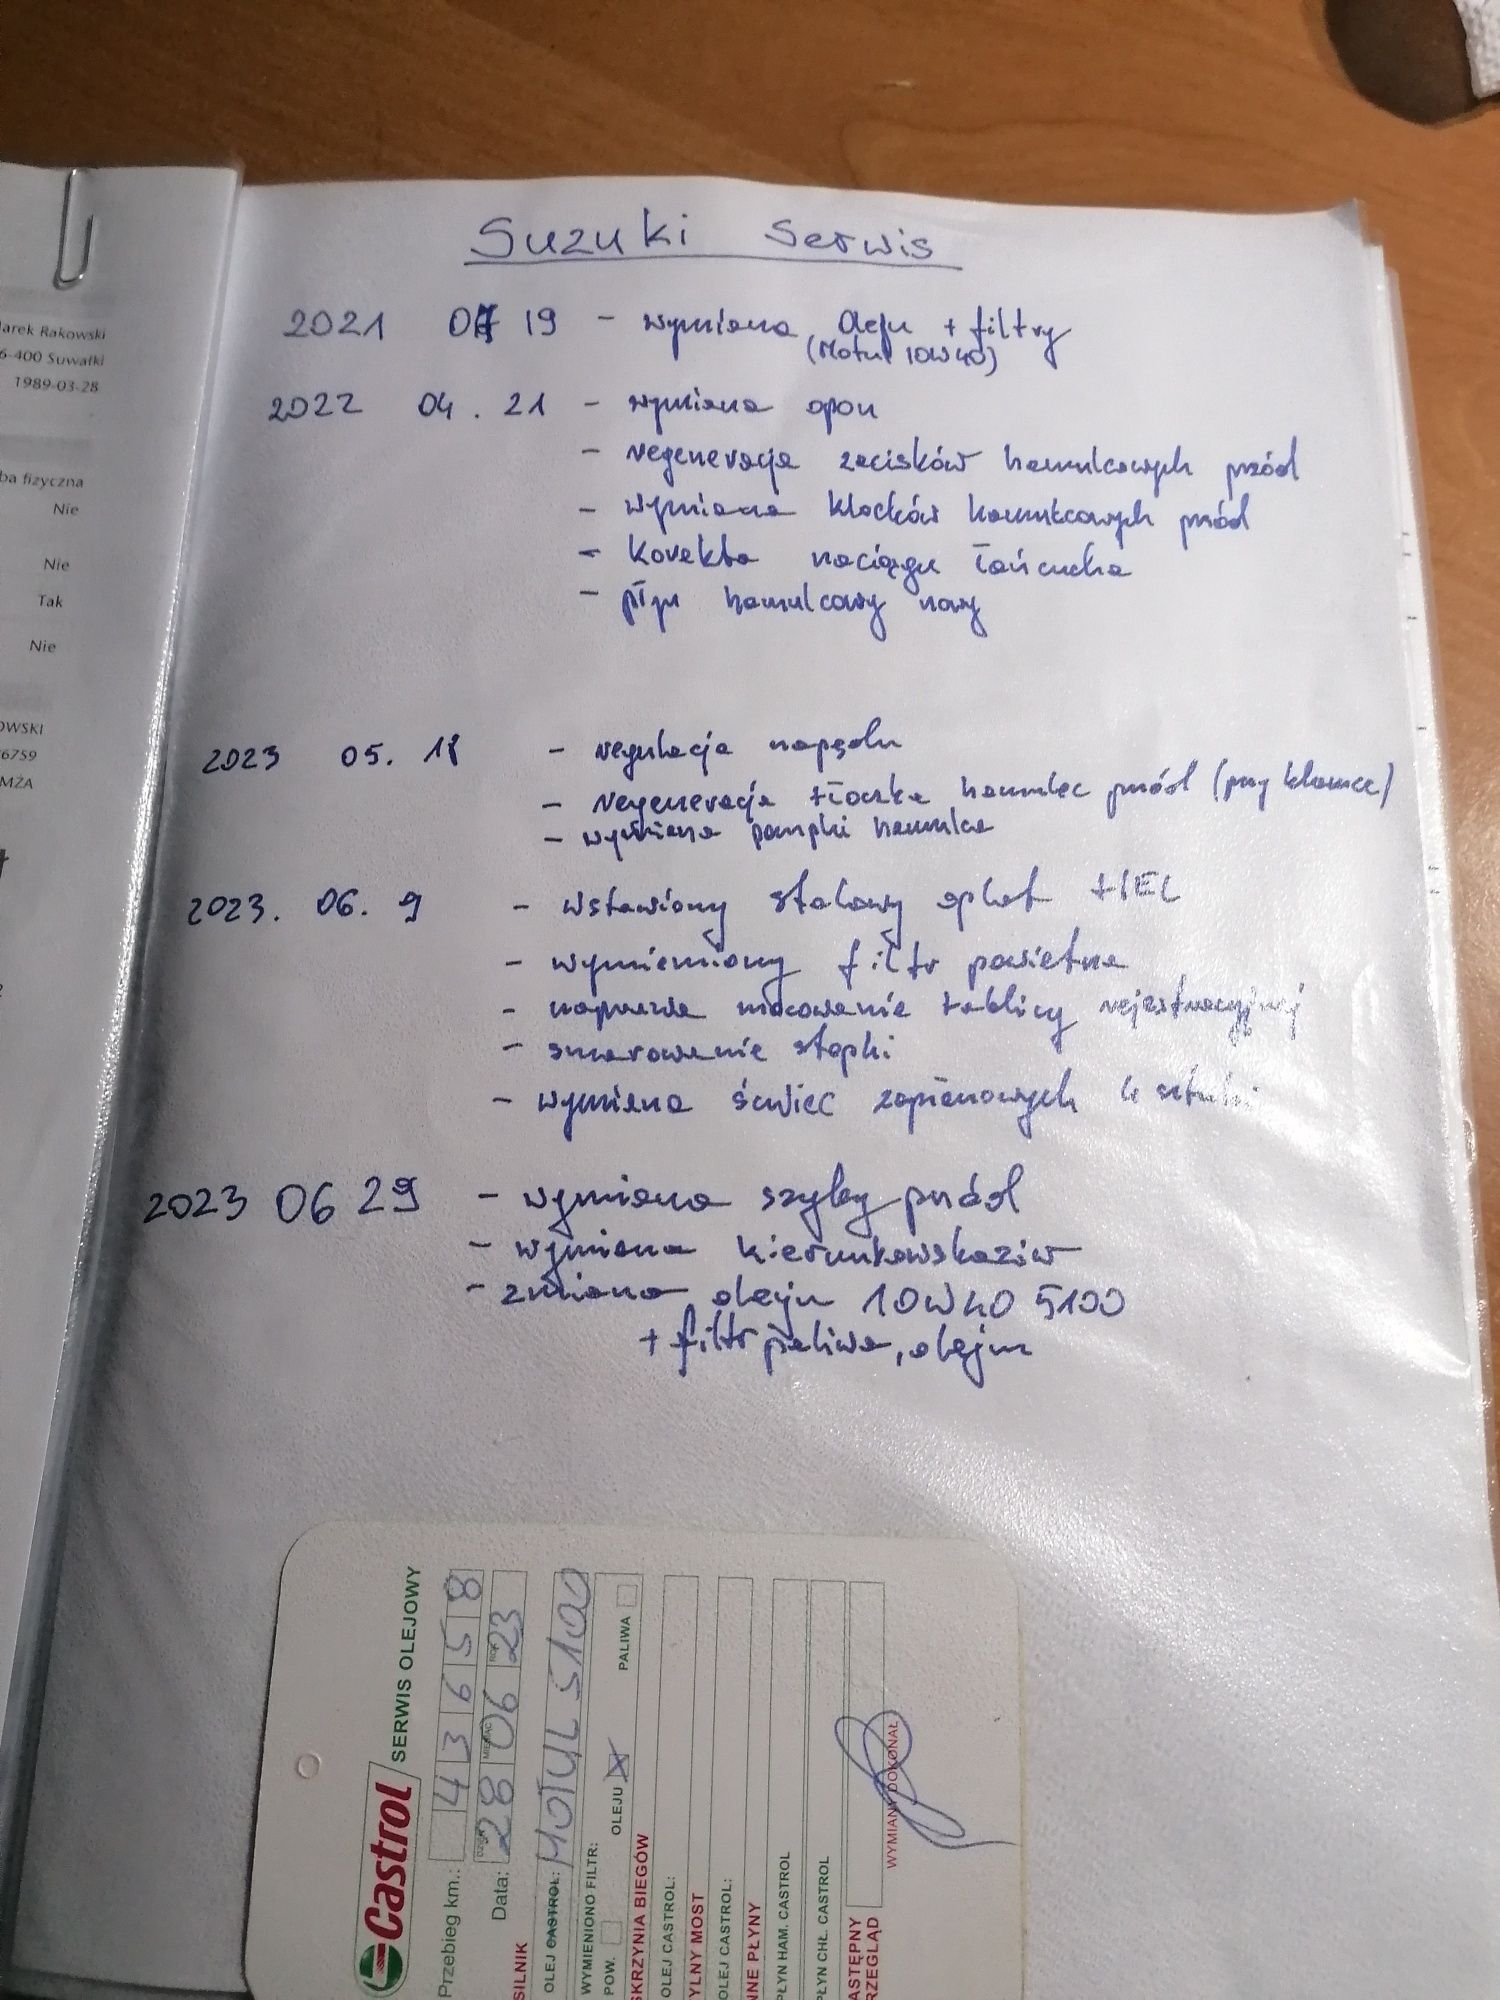 Marek Rakowski
6-400 Suwałki
1989-03-28
ba fizyczna
Nie
Nie
Tak
Nie
OWSKI
6759
MŻA
Suzuki Serwis
2021 07 19 - wymiana Oleju + filtry
(Motul 10W40)
2022 04. 21 - wymiana opon
- regeneracja zacisków hamulcowych przód
- wymiana klocków hamulcowych przód
- korekta naciągu łańcucha
- płyn hamulcowy nowy
2023 05. 18 - regulacja napędu
- regeneracja tłoczka hamulec przód (przy klamce)
- wymiana pompki hamulca
2023. 06. 9 - wstawiony stalowy oplot HEL
- wymieniony filtr powietrza
- naprawa mocowanie tablicy rejestracyjnej
- smarowanie stopki
- wymiana świec zapłonowych 4 sztuki
2023 06 29 - wymiana szyby przód
- wymiana kierunkowskazów
- zmiana oleju 10W40 5100
+ filtr paliwa, oleju
Castrol SERWIS OLEJOWY
Przebieg km.: 43658
Data: DZIEŃ 28 MIESIĄC 06 ROK 23
SILNIK
OLEJ CASTROL: MOTUL 5100
WYMIENIONO FILTR:
POW. OLEJU X PALIWA
SKRZYNIA BIEGÓW
OLEJ CASTROL:
YLNY MOST
OLEJ CASTROL:
NNE PŁYNY
PŁYN HAM. CASTROL
PŁYN CHŁ. CASTROL
ASTĘPNY
RZEGLĄD
WYMIANY DOKONAŁ